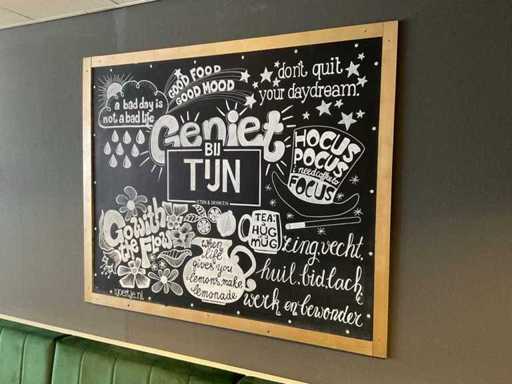 a bad day is
not a bad life
GOOD FOOD
GOOD MOOD
don't quit
your daydream.
Geniet
BIJ
TIJN
ETEN & DRINKEN
HOCUS
POCUS
i need coffee to
FOCUS
Go with
the Flow
TEA:
A
HUG
IN A
MUG
when
life
gives you
lemons, make
lemonade
zing, vecht,
huil, bid, lach,
werk en bewonder